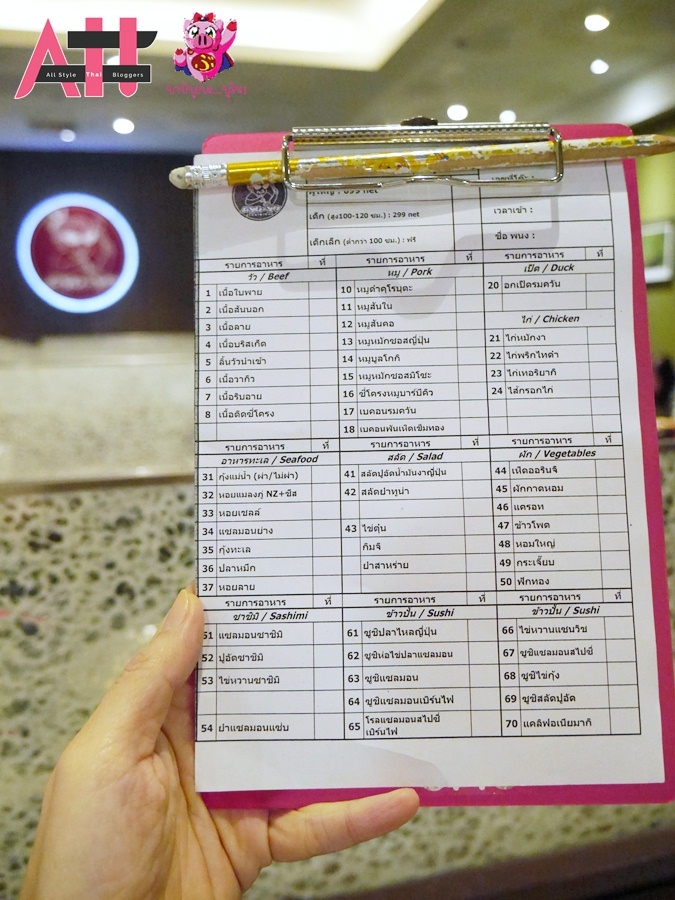 All Style Thai Bloggers
ผู้ใหญ่ : 699 net
เลขที่โต๊ะ :
เด็ก (สูง100-120 ซม.) : 299 net
เวลาเข้า :
เด็กเล็ก (ต่ำกว่า 100 ซม.) : ฟรี
ชื่อ พนง :
รายการอาหาร ที่
วัว / Beef
1 เนื้อใบพาย
2 เนื้อสันนอก
3 เนื้อลาย
4 เนื้อบริสเก็ต
5 ลิ้นวัวนำเข้า
6 เนื้อวากิว
7 เนื้อริบอาย
8 เนื้อติดซี่โครง
รายการอาหาร ที่
หมู / Pork
10 หมูดำคุโรบุตะ
11 หมูสันใน
12 หมูสันคอ
13 หมูหมักซอสญี่ปุ่น
14 หมูบูลโกกิ
15 หมูหมักซอสมิโซะ
16 ซี่โครงหมูบาร์บีคิว
17 เบคอนรมควัน
18 เบคอนพันเห็ดเข็มทอง
รายการอาหาร ที่
เป็ด / Duck
20 อกเป็ดรมควัน
ไก่ / Chicken
21 ไก่หมักงา
22 ไก่พริกไทดำ
23 ไก่เทอริยากิ
24 ไส้กรอกไก่
รายการอาหาร ที่
อาหารทะเล / Seafood
31 กุ้งแม่น้ำ (ผ่า/ไม่ผ่า)
32 หอยแมลงภู่ NZ+ชีส
33 หอยเชลล์
34 แซลมอนย่าง
35 กุ้งทะเล
36 ปลาหมึก
37 หอยลาย
รายการอาหาร ที่
สลัด / Salad
41 สลัดปูอัดน้ำมันงาญี่ปุ่น
42 สลัดปาทูน่า
43 ไข่ตุ๋น
กิมจิ
ยำสาหร่าย
รายการอาหาร ที่
ผัก / Vegetables
44 เห็ดออรินจิ
45 ผักกาดหอม
46 แครอท
47 ข้าวโพด
48 หอมใหญ่
49 กระเจี๊ยบ
50 ฟักทอง
รายการอาหาร ที่
ซาซิมิ / Sashimi
51 แซลมอนซาซิมิ
52 ปูอัดซาซิมิ
53 ไข่หวานซาซิมิ
54 ยำแซลมอนแซ่บ
รายการอาหาร ที่
ข้าวปั้น / Sushi
61 ซูชิปลาไหลญี่ปุ่น
62 ซูชิห่อไข่ปลาแซลมอน
63 ซูชิแซลมอน
64 ซูชิแซลมอนเบิร์นไฟ
65 โรลแซลมอนสไปซี่
เบิร์นไฟ
รายการอาหาร ที่
ข้าวปั้น / Sushi
66 ไข่หวานแซนวิช
67 ซูชิแซลมอนสไปซี่
68 ซูชิไข่กุ้ง
69 ซูชิสลัดปูอัด
70 แคลิฟอเนียมากิ